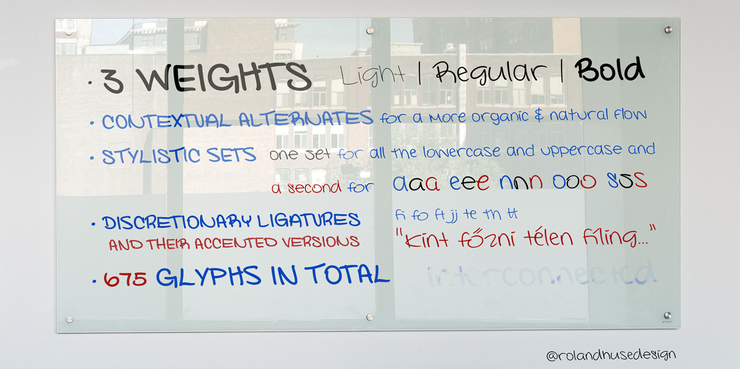 · 3 WEIGHTS Light | Regular | Bold
· CONTEXTUAL ALTERNATES for a more organic & natural flow
· STYLISTIC SETS one set for all the lowercase and uppercase and
a second for aaa eee nnn ooo sss
· DISCRETIONARY LIGATURES fi fo ft jj te tn tt
AND THEIR ACCENTED VERSIONS "kint főzni télen filing..."
· 675 GLYPHS IN TOTAL interconnected
@rolandhusedesign